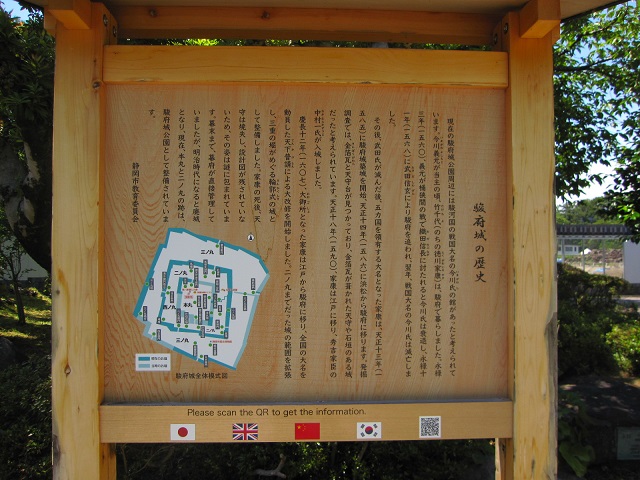 駿府城の歴史
現在の駿府城公園周辺には駿河国の戦国大名の今川氏の館があったと考えられて
います。今川義元が当主の頃、竹千代（のちの徳川家康）は、駿府で暮らしました。永禄
三年（一五六〇）、義元が桶狭間の戦で織田信長に討たれると今川氏は衰退し、永禄十
一年（一五六八）武田信玄により駿府を追われ、翌年、戦国大名の今川氏は滅亡しま
した。
その後、武田氏が滅んだ後、五カ国を領有する大名となった家康は、天正十三年（一
五八五）に駿府城築城を開始、天正十四年（一五八六）に浜松から駿府に移ります。発掘
調査では、金箔瓦と天守台が見つかっており、金箔瓦が葺かれた天守や石垣のある城
だったと考えられています。天正十八年（一五九〇）家康は江戸に移り、秀吉家臣の
中村一氏が入城しました。
慶長十二年（一六〇七）、大御所となった家康は江戸から駿府に移り、全国の大名を
動員した天下普請による大改修を開始しました。二ノ丸までだった城の範囲を拡張
し、三重の堀がめぐる輪郭式の城と
して整備しました。家康の死後、天
守は焼失し、設計図が残されていな
いため、その姿は謎に包まれていま
す。幕末まで、幕府が直接管理して
いましたが、明治時代になると廃城
となり、現在、本丸と二ノ丸の跡は、
駿府城公園として整備されていま
す。
静岡市教育委員会
三ノ丸
二ノ丸
本丸
二ノ丸
三ノ丸
駿府城全体模式図
Please scan the QR to get the information.